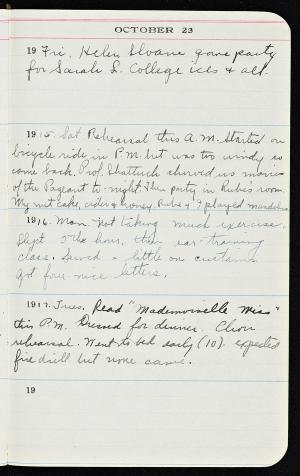 OCTOBER 23
19 Fri. Helen Sloane gave party
for Sarah L. College ices & all.
1915. Sat. Rehearsal this A.M. Started on
bicycle ride in P.M. but was too windy so
came back. Prof. Shattuck showed us movies
of the Pageant to-night. Then party in Rubie's room.
My nut cake, cider & honey. Rubie & I played mandolins
1916. Mon. Not taking much exercise.
Slept 5th hour, then ear-training
class. Sewed a little on curtains
Got four nice letters.
1917. Tues. Read "Mademoiselle Miss"
this P.M. Dressed for dinner. Choir
rehearsal. Went to bed early (10). expected
fire drill but none came.
19